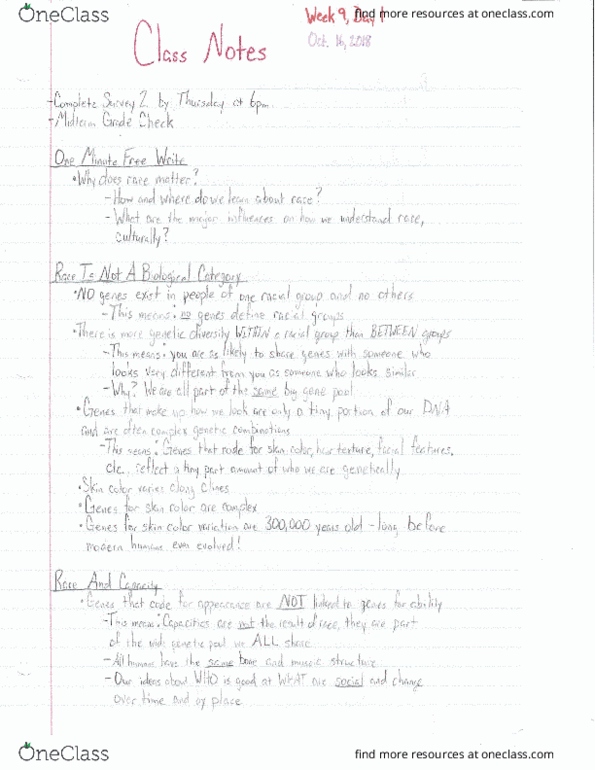 OneClass
find more resources at oneclass.com
Week 9, Day 1
Oct. 16, 2018
Class Notes
-Complete Survey 2 by Thursday at 6pm
-Midterm Grade Check
One Minute Free Write
•Why does race matter?
-How and where do we learn about race?
-What are the major influences on how we understand race,
culturally?
Race Is Not A Biological Category
•NO genes exist in people of one racial group and no others
-This means: no genes define racial groups
•There is more genetic diversity WITHIN a racial group than BETWEEN groups
-This means: you are as likely to share genes with someone who
looks very different from you as someone who looks similar
-Why? We are all part of the same big gene pool
•Genes that make up how we look are only a tiny portion of our DNA
and are often complex genetic combinations
-This means: Genes that code for skin color, hair texture, facial features,
etc., reflect a tiny part amount of who we are genetically
•Skin color varies along clines
•Genes for skin color are complex
•Genes for skin color variation are 300,000 years old - long before
modern humans even evolved!
Race And Capacity
•Genes that code for appearance are NOT linked to genes for ability
-This means: Capacities are not the result of race, they are part
of the wide genetic pool we ALL share
-All humans have the same bone and muscle structure
-Our ideas about WHO is good at WHAT are social and change
over time and by place
OneClass
find more resources at oneclass.com